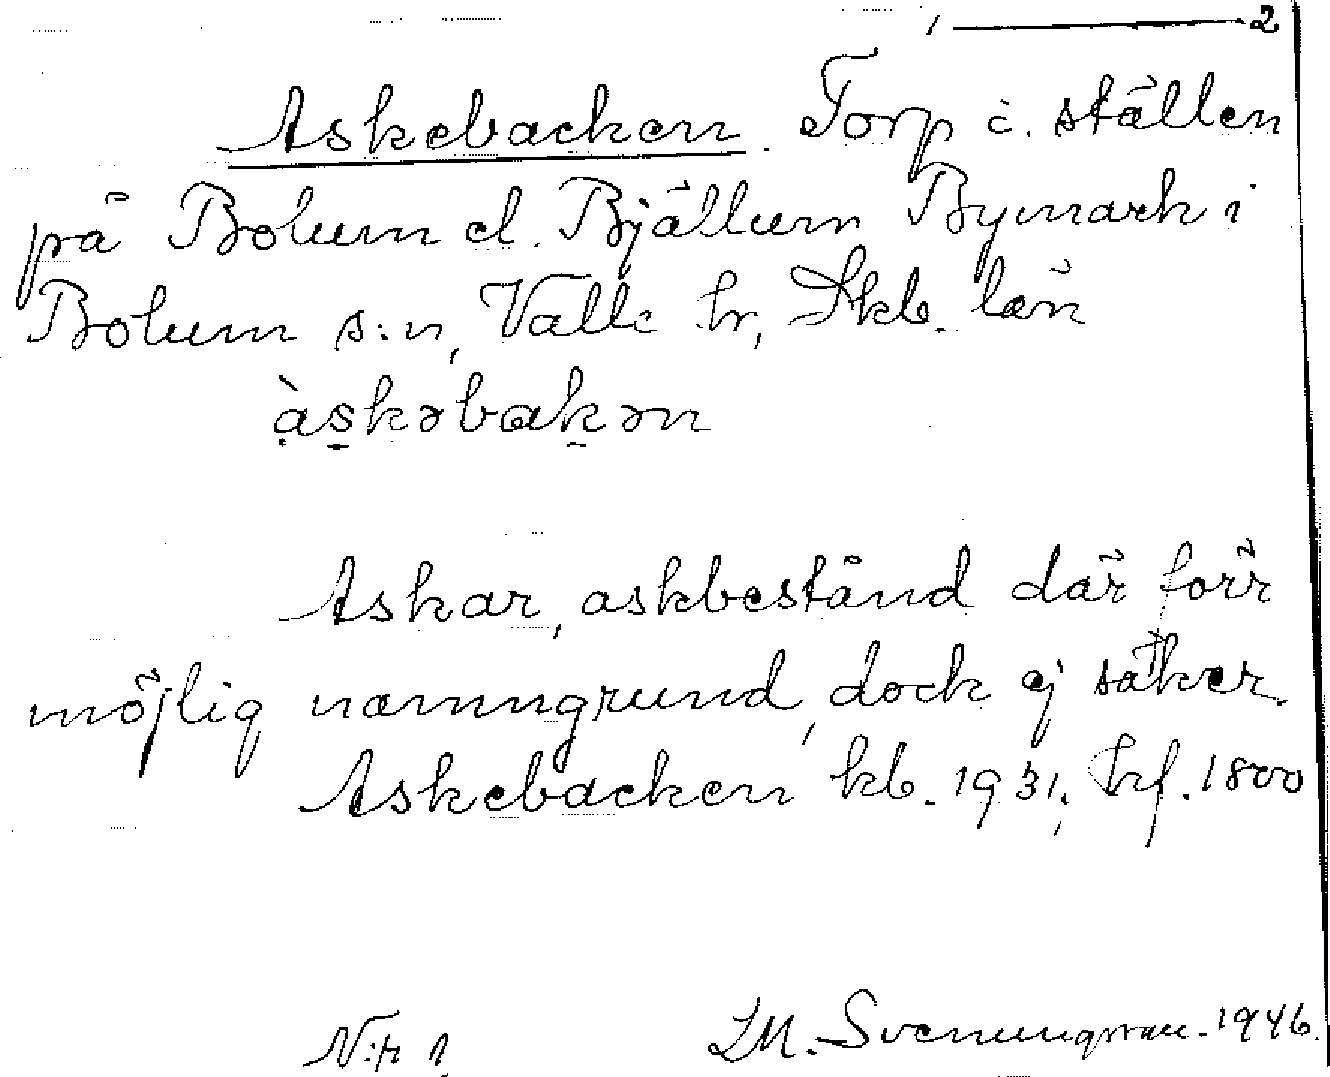 1 ——— 2
Askebacken. Torp o. ställen
på Bolum el. Bjällum Bymark i
Bolum s:n, Valle hr, Skb. län
àskəbakən
Askar, askbestånd där förr
möjlig namngrund, dock ej säker.
Askebacken kb. 1931, hf. 1800
N:r 1
LM. Svenungsson - 1946.